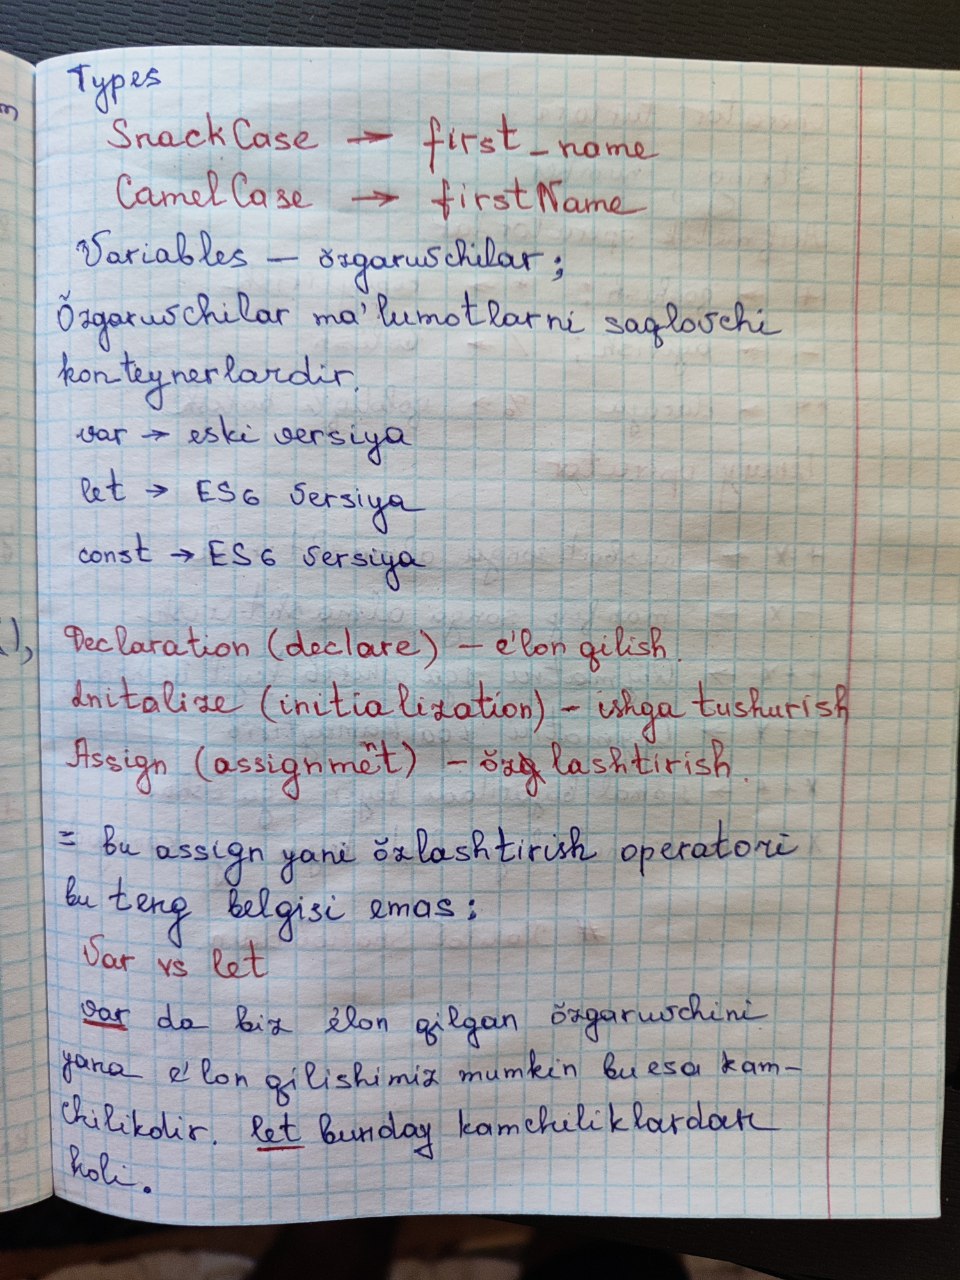 Types
SnackCase → first_name
CamelCase → firstName
Variables — ŏzgaruvchilar;
Ŏzgaruvchilar ma'lumotlarni saqlovchi
konteynerlardir.
var → eski versiya
let → ES6 versiya
const → ES6 versiya
Declaration (declare) – e'lon qilish.
Initalize (initialization) – ishga tushurish
Assign (assignment) – ŏzlashtirish.
= bu assign yani ŏzlashtirish operatori
bu teng belgisi emas;
Var vs let
var da biz élon qilgan ŏzgaruvchini
yana e'lon qilishimiz mumkin bu esa kam–
chilikdir. let bunday kamchiliklardan
holi.